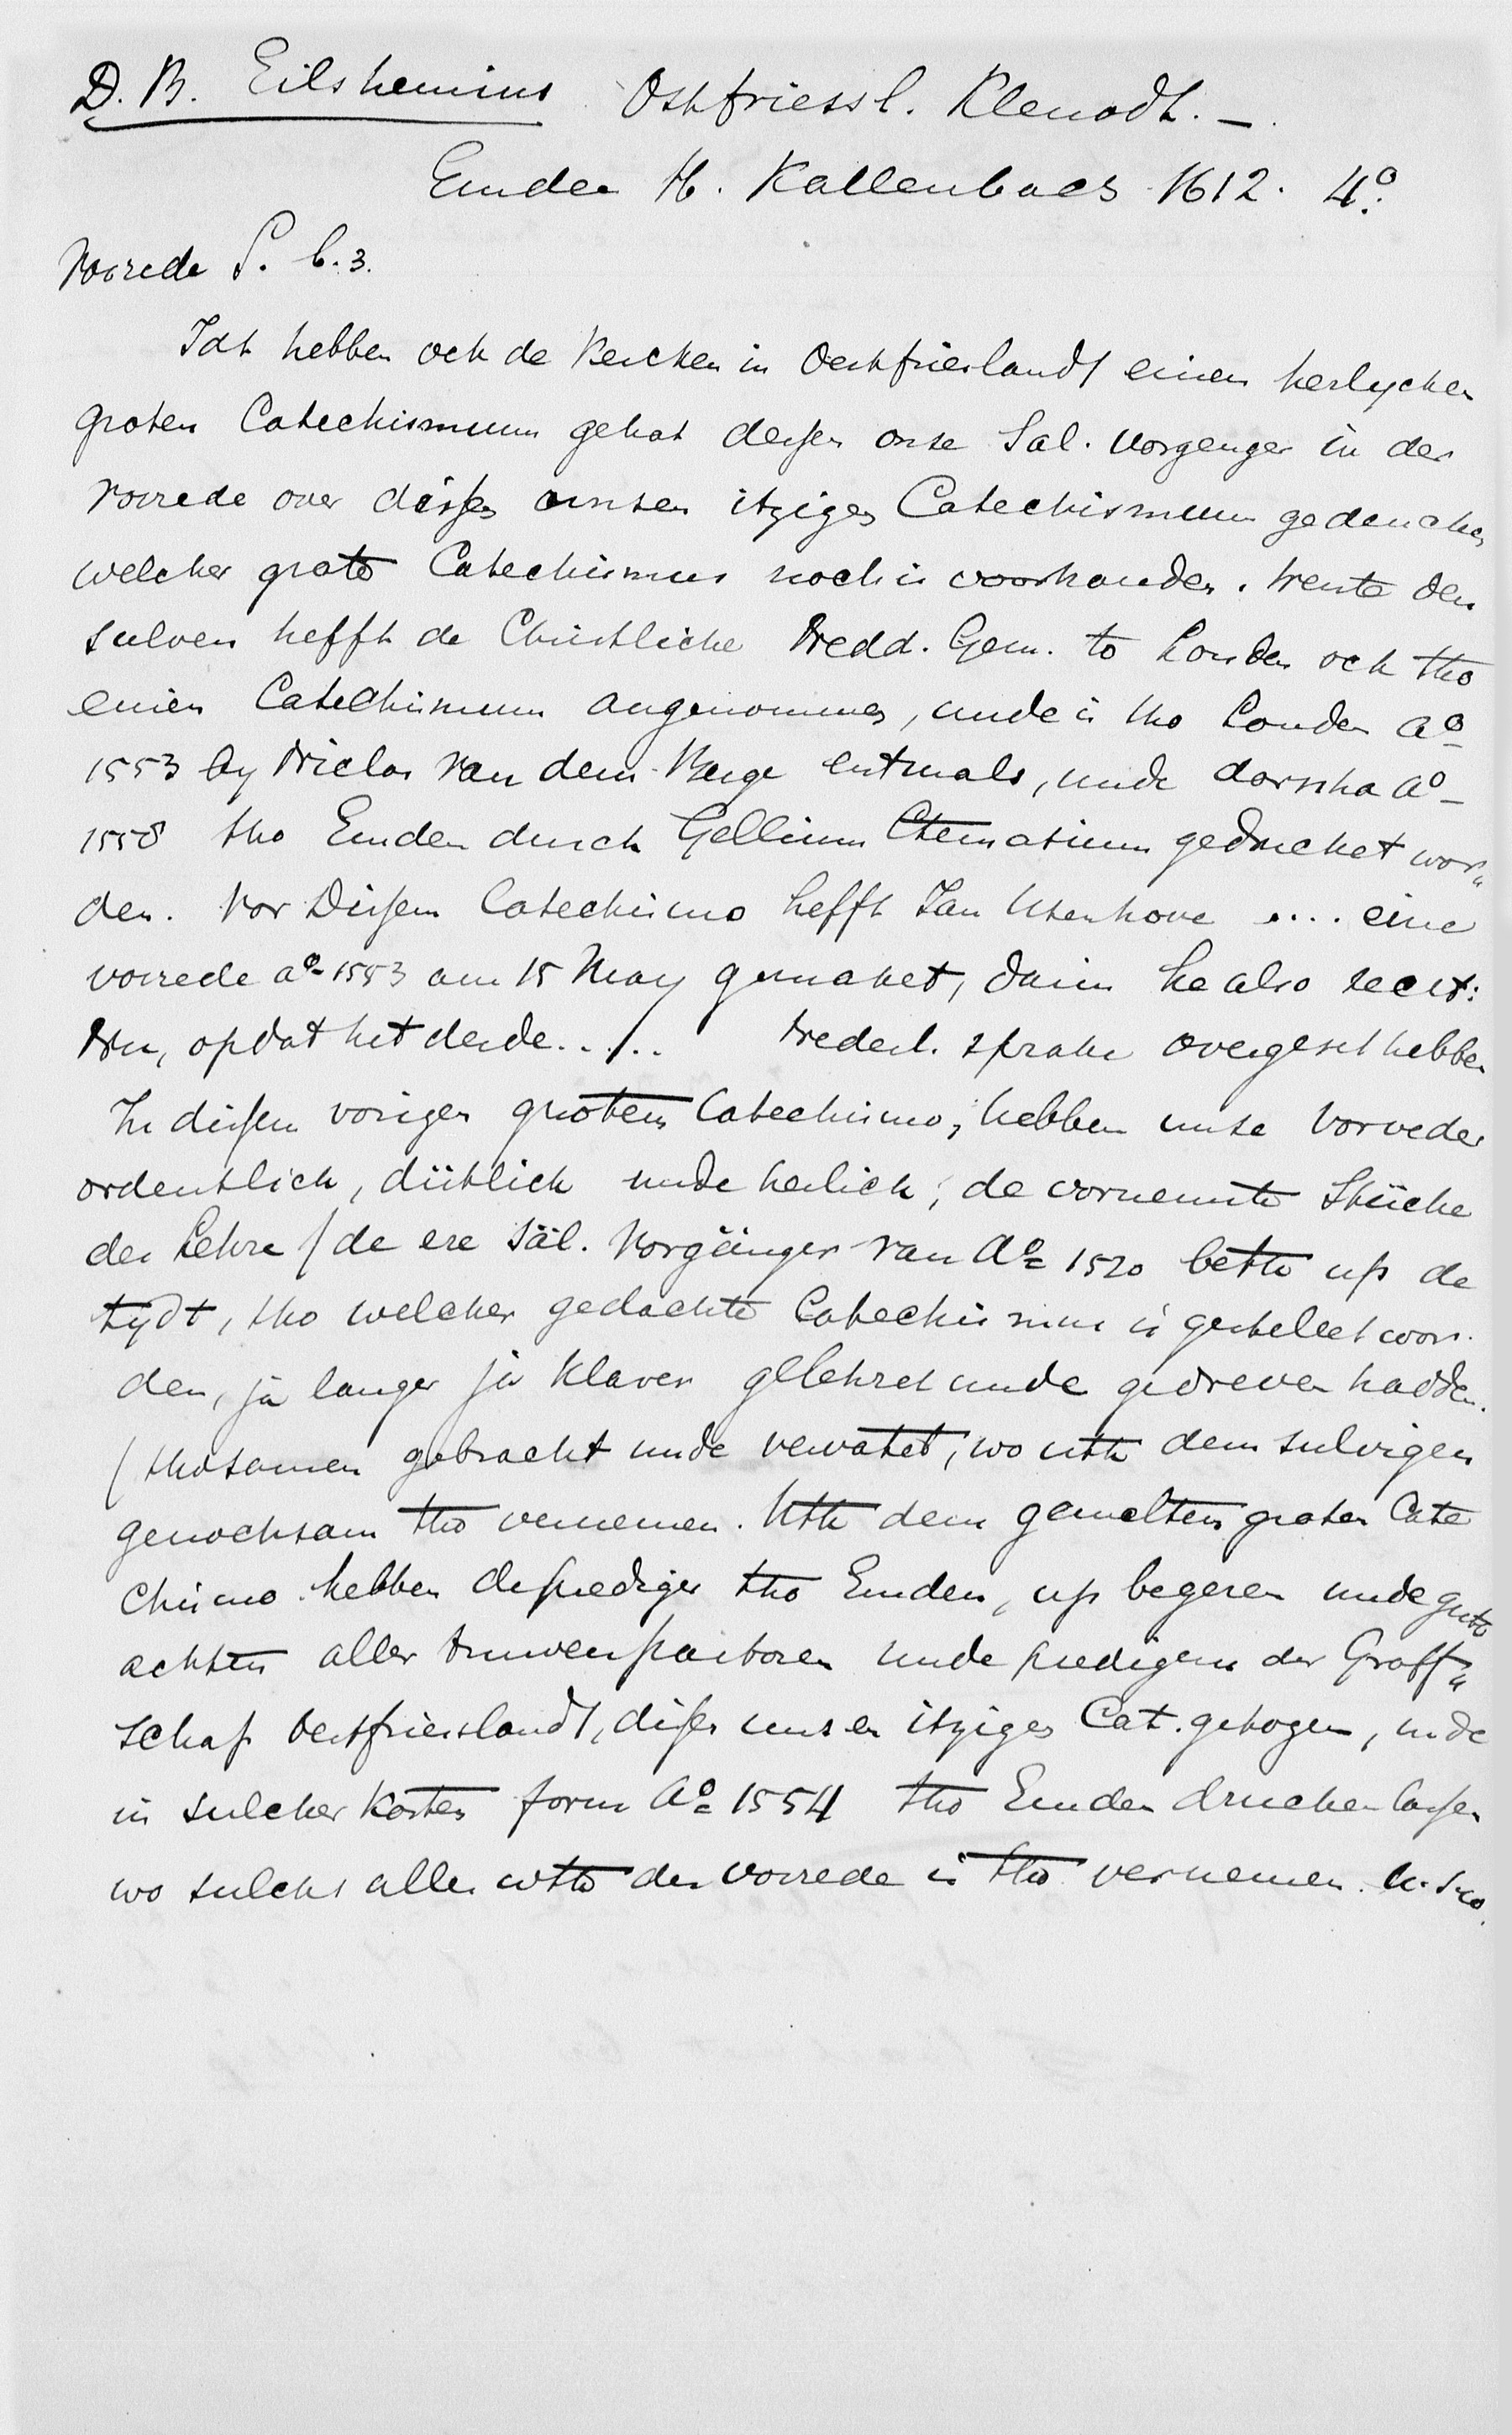 D. B. Eilshemius Ostfriessl. Klenodt. –
Emden H. Kallenbach 1612. 4°.
Vorrede S. b. 3.
Idt hebben ock de Kercken in Oestfrieslandt einen herlycken
groten Catechismum gehat dessen onse Sal. Vorgenger in der
Vorrede over dissen onsen itzigen Catechismum gedencken,
welcher grote Catechismus noch is voorhanden. Wente den
sulven hefft de Christliche Nedd. Gem. to Londen ock tho
einen Catechismum angenommen, unde is tho Londen a°
1553 by Niclas van dem Berge erstmals, unde darnha a°
1558 tho Emden durch Gellium Ctematium gedrucket wor„
den. Vor Dissem Catechismo hefft Jan Utenhove .... eine
vorrede a° 1553 am 15 May gemaket, darin he also secr:
Nu, opdat het derde..... Nederl. sprake overgeset hebben
In dissem vorigen groten Catechismo, hebben unse Vorveder
ordentlich, dütlich unde herlich, de vornemste Stücke
der Lehre / de ere Säl. Vorgänger van A° 1520 betho up de
tydt, tho welcher gedachte Catechismus is gestellet wor.
den, ja langer ja klarer gelehret unde gedreven hadden.
/ thosamen gebracht unde vervatet, wo uth dem sulvigen
genochsam tho vernemen. Uth dem gemelten groten Cate
chismo hebben de prediger tho Emden, up begeren unde gutt
achten aller truwen pastoren unde predigern der Graff„
schap Oestfrieslandt, dissen unsen itzigen Cat. getogen, unde
in sulcher korten form A° 1554 tho Emden drucken lassen
wo sulchs alles uth der vorrede is tho vernemen. u.s.w.